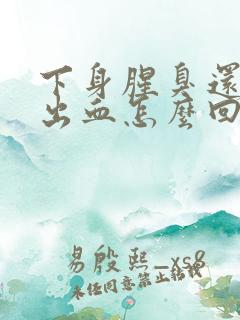 下身腥臭還
出血怎麼回
易殷熙_xs8
未任同意禁止转载